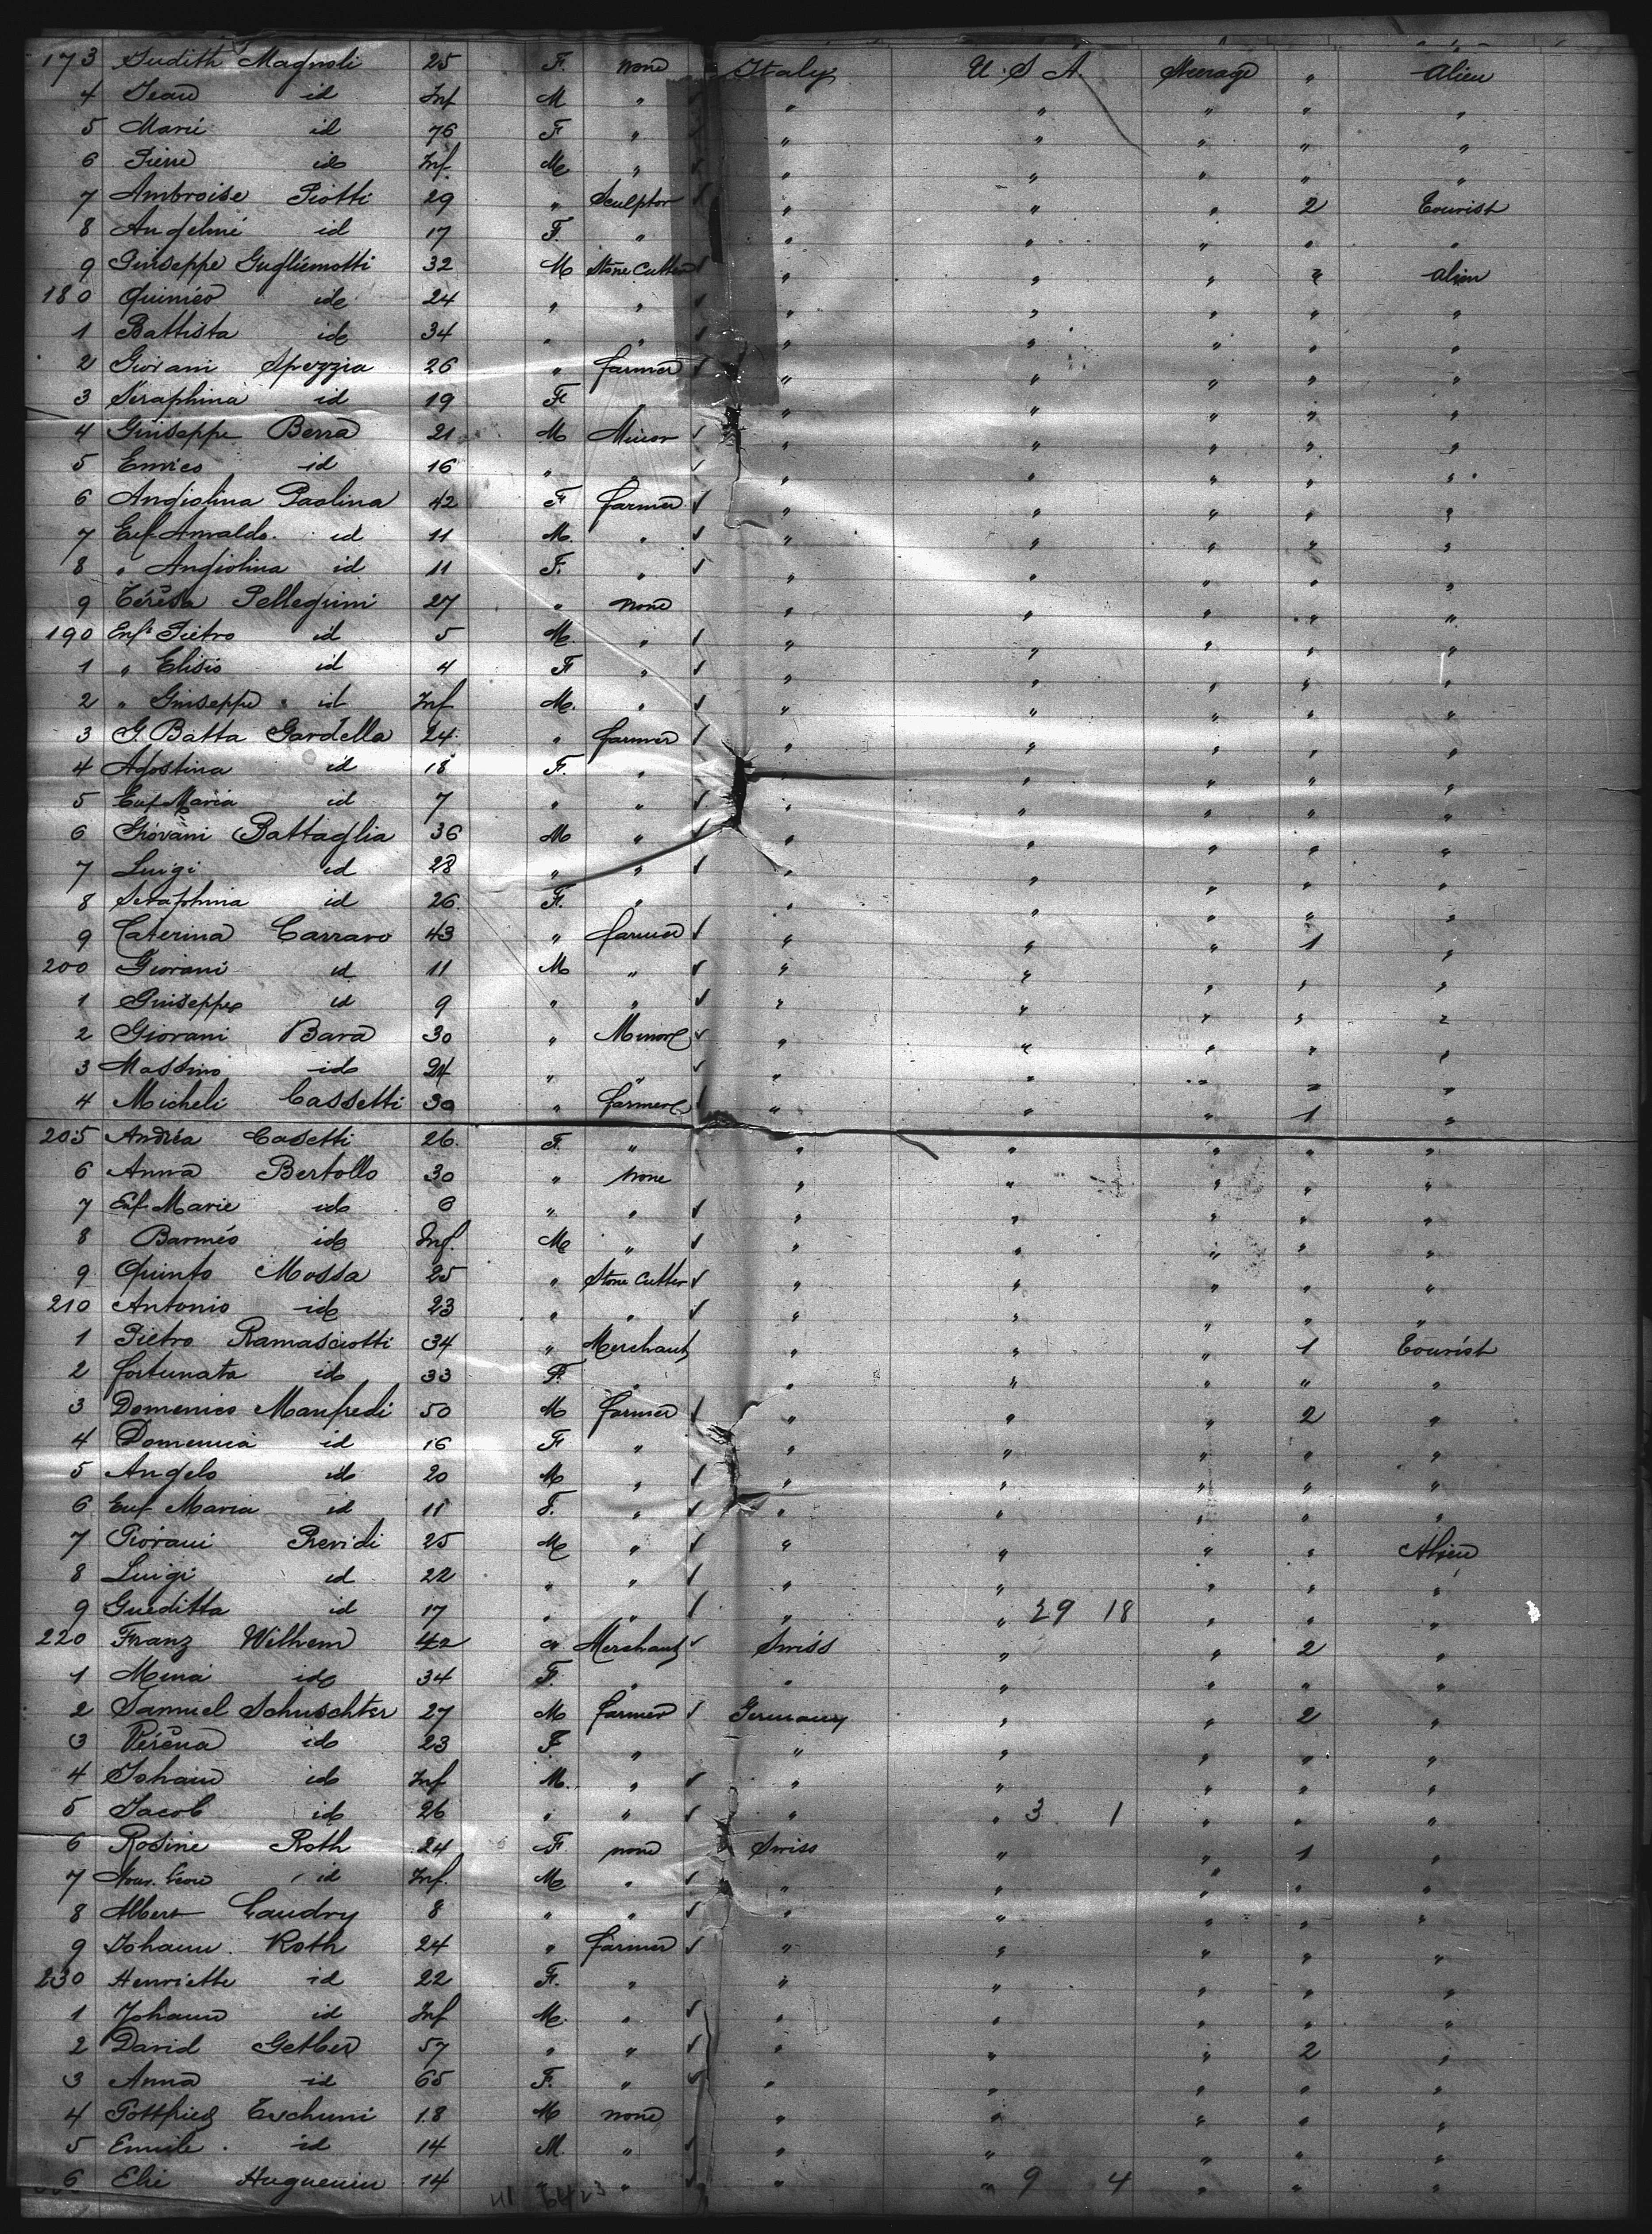 173 Judith Magnoli 25 F. none Italy U.S.A. Steerage " Alien
4 Jean id Inf M " " " " " "
5 Marie id 76 F " " " " " "
6 Pierre id Inf. M " " " " " "
7 Ambroise Piotti 29 " Sculptor " " " 2 Tourist
8 Angeline id 17 F. " " " " " "
9 Guiseppe Gugliemotti 32 M Stone Cutter " " " " Alien
180 Quinico id 24 " " " " " " "
1 Battista id 34 " " " " " " "
2 Giovani Spezzia 26 " farmer " " " " "
3 Séraphina id 19 F " " " " " "
4 Guiseppe Berra 21 M Minor " " " " "
5 Enrico id 16 " " " " " " "
6 Angiolina Paolina 42 F farmer " " " " "
7 Enf. Arnaldo id 11 M. " " " " " "
8 " Angiolina id 11 F. " " " " " "
9 Térésa Pellegrini 27 " none " " " " "
190 Enf. Pietro id 5 M. " " " " " "
1 " Elisio id 4 F " " " " " "
2 " Guiseppe id Inf M. " " " " " "
3 G. Batta Gardella 24 " farmer " " " " "
4 Agostina id 18 F. " " " " " "
5 Enf. Maria id 7 " " " " " " "
6 Giovani Battaglia 36 M " " " " " "
7 Luigi id 28 " " " " " " "
8 Seraphina id 26. F. " " " " " "
9 Caterina Carraro 43 " farmer " " " 1 "
200 Giovani id 11 M " " " " " "
1 Guiseppe id 9 " " " " " " "
2 Giovani Bara 30 " Minor " " " " "
3 Massimo id 24 " " " " " " "
4 Micheli Cassetti 30 " farmer " " " 1 "
205 Andréa Casetti 26. F. " " " " " "
6 Anna Bertollo 30 " none " " " " "
7 Enf. Marie id 6 " " " " " " "
8 Barméo id Inf. M " " " " " "
9 Quinto Mossa 25 " Stone Cutter " " " " "
210 Antonio id 23 " " " " " " "
1 Pietro Ramasciotti 34 " Merchant " " " 1 Tourist
2 fortunata id 33 F. " " " " " "
3 Domenico Manfredi 50 M farmer " " " 2 "
4 Domenica id 16 F " " " " " "
5 Angelo id 20 M " " " " " "
6 Enf Maria id 11 F. " " " " " "
7 Giovani Previdi 25 M " " " " " Alien
8 Luigi id 22 " " " " " " "
9 Gueditta id 17 " " " " 29 18 " " "
220 Franz Wilhem 42 " Merchant Swiss " " 2 "
1 Mina id 34 F. " " " " " "
2 Samuel Schuschter 27 M farmer Germany " " 2 "
3 Vérèna id 23 F " " " " " "
4 Johann id Inf M. " " " " " "
5 Jacob id 26 " " " " 3 1 " " "
6 Rosine Roth 24 F none Swiss " " 1 "
7 id Inf. M " " " " " "
8 Albert Gaudry 8 " " " " " " "
9 Johann Roth 24 " farmer " " " " "
230 Henriette id 22 F. " " " " " "
1 Johann id Inf M. " " " " " "
2 David Gerber 57 " " " " " 2 "
3 Anna id 65 F. " " " " " "
4 Gottfried Eschuni 18 M none " " " " "
5 Emile id 14 M. " " " " " "
6 Elie Huguenin 14 " " " " 9 4 " " "